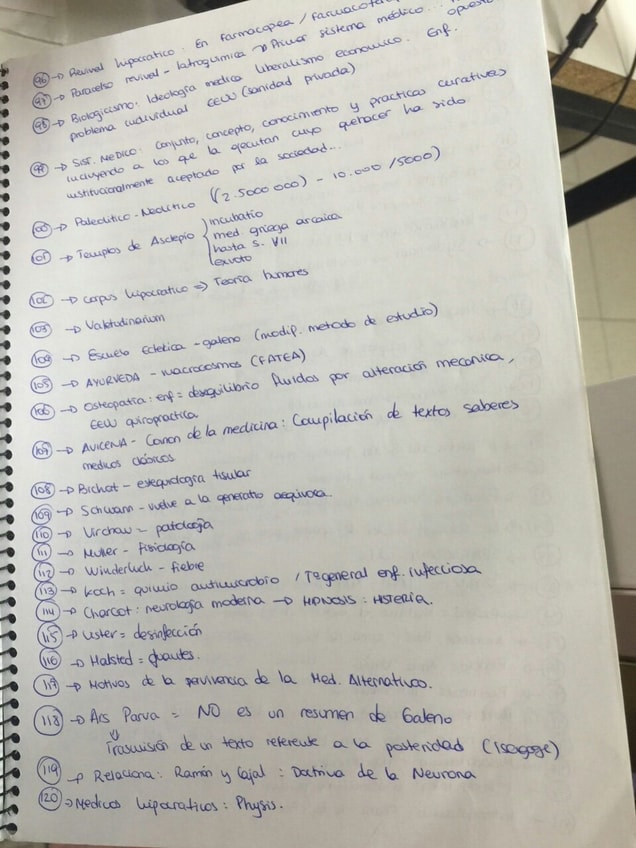 96 → Revival hipocratico: En farmacopea / farmacoterap
97 → Paracelso revival - Iatroquimica → Primer sistema médico...
98 → Biologicismo: Ideología medica liberalismo economico. Enf.
problema individual EEUU (sanidad privada)
99 → Sist. MEDICO: conjunto, concepto, conocimiento y practicas curativas
incluyendo a los que la ejecutan cuyo quehacer ha sido
institucionalmente aceptado por la sociedad...
100 → Paleolitico - Neolitico ((2.5000000) - 10.000 / 5000)
101 → Templos de Asclepio { incubatio
med. griega arcaica
hasta s. VII
exvoto
102 → corpus hipocratico => Teoría humores
103 → Valetudinarium
104 → Escuela Ecletica - galeno (modif. metodo de estudio)
105 → AYURVEDA - macrocosmos (FATEA)
106 → Osteopatía: enf = desequilibrio fluidos por alteración mecanica,
EEUU quiropractica
107 → AVICENA - Canon de la medicina: Compilación de textos saberes
medicos clásicos
108 → Bichat - estequiología tisular
109 → Schwann - vuelve a la generatio aequivoca.
110 → Virchow = patología
111 → Muller - Fisiología
112 → Wünderlich - fiebre
113 → Koch = quimio antimicrobio / Tªgeneral enf. infecciosa
114 → Charcot: neurología moderna → HIPNOSIS: HISTERIA.
115 → Lister = desinfección
116 → Halsted = guantes.
117 → Motivos de la pervivencia de la Med. Alternativa.
118 → Ars Parva = NO es un resumen de Galeno
⇓
Trasmisión de un texto referente a la posteridad (Isagoge)
119 → Relaciona: Ramón y Cajal: Doctrina de la Neurona
120 → Medicos hipocraticos: Physis.